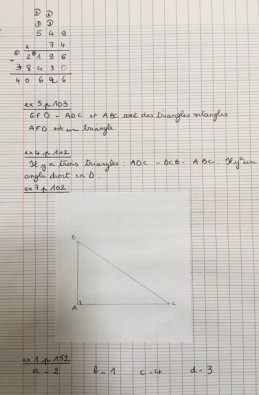 5 4 9
x 7 4
2 1 9 6
3 8 4 3 0
4 0 6 2 6
ex 3 p 103
EFD - ADC et ABC sont des triangles rectangles
AFD est un triangle
ex 4 p 102
Il y a trois triangles : ADC - DCB - ABC. Il y a un
angle droit en D.
ex 7 p 102
B
A
C
ex 1 p 152
a - 2 b - 1 c - 4 d - 3